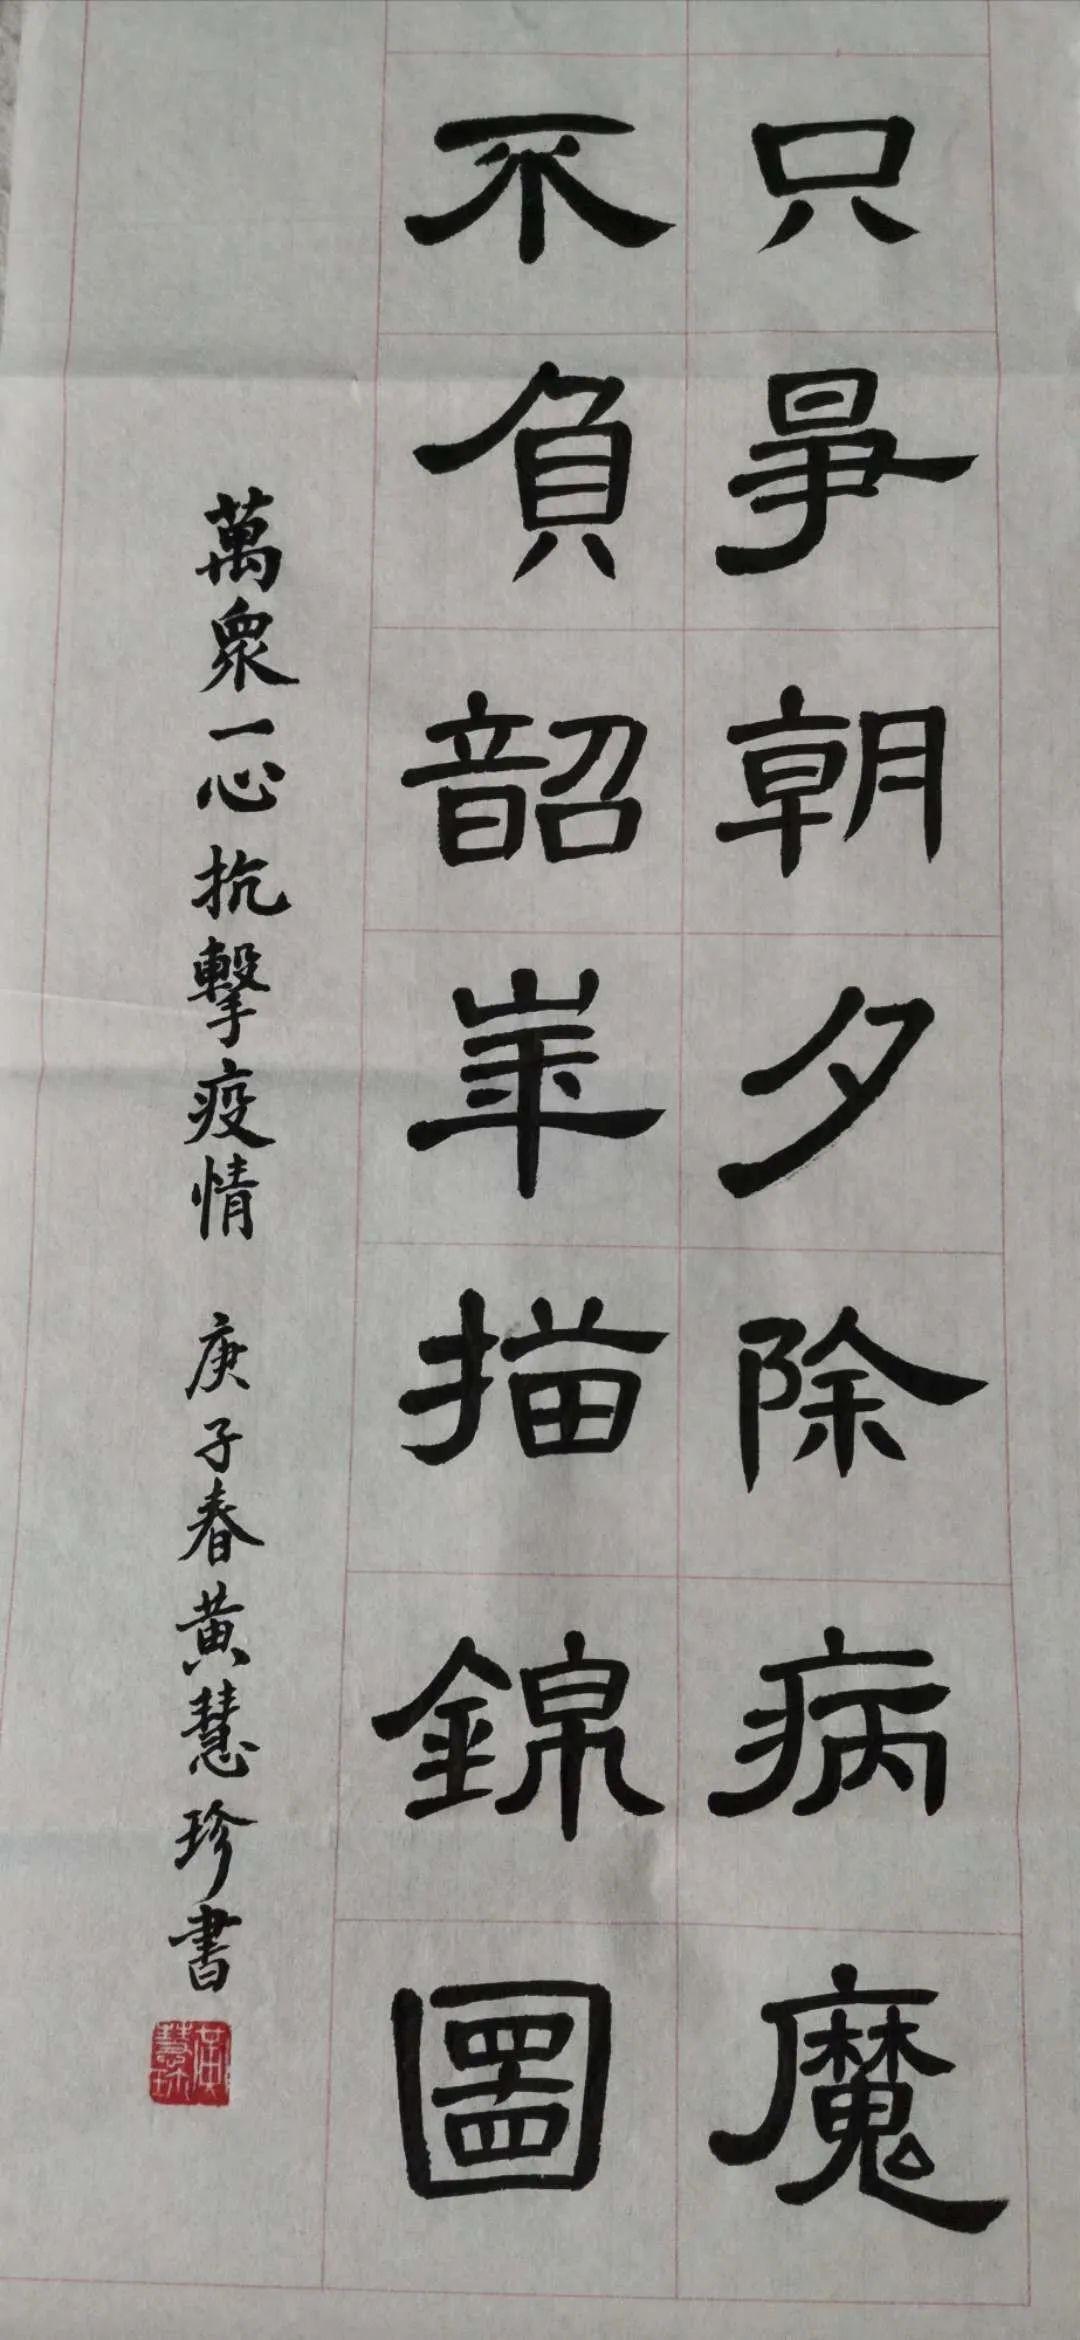 只爭朝夕除病魔
不負韶華描錦圖
萬眾一心抗擊疫情 庚子春黃慧珍書
黃慧珍